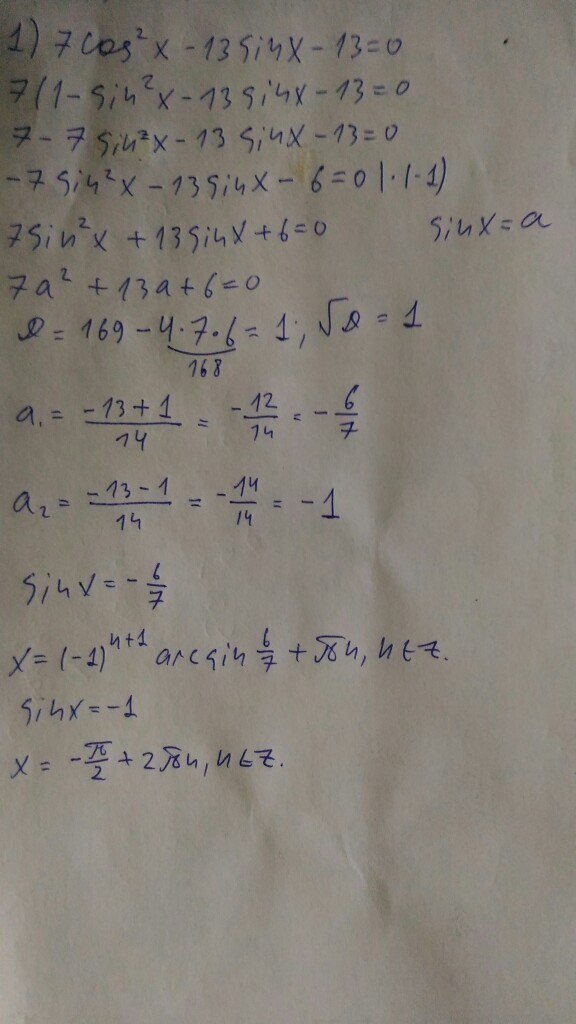 1) 7cos²x - 13sinx - 13 = 0
7(1 - sin²x - 13sinx - 13 = 0
7 - 7sin²x - 13sinx - 13 = 0
-7sin²x - 13sinx - 6 = 0 |·(-1)
7sin²x + 13sinx + 6 = 0 sinx = a
7a² + 13a + 6 = 0
D = 169 - 4·7·6 = 1; √D = 1
168
a₁ = (-13+1)/14 = -12/14 = -6/7
a₂ = (-13-1)/14 = -14/14 = -1
sinx = -6/7
x = (-1)ⁿ⁺¹ arcsin 6/7 + πn, n∈Z.
sinx = -1
x = -π/2 + 2πn, n∈Z.